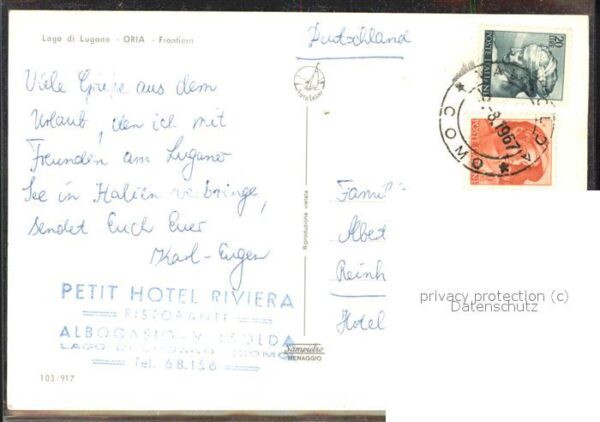 Lago di Lugano - ORIA - Frontiera
Deutschland
Viele Grüße aus dem
Urlaub, den ich mit
Freunden am Luganer
See in Italien verbringe,
sendet Euch Euer
Karl-Eugen
PETIT HOTEL RIVIERA
RISTORANTE
ALBOGASIO - VALSOLDA
LAGO DI LUGANO (COMO)
Tel. 68.156
103/917
Riproduzione vietata
Sampietro
MENAGGIO
POSTE ITALIANE
20
COMO
8.1967
Famili
Abet
Reinh
Hotel
privacy protection (c)
Datenschutz